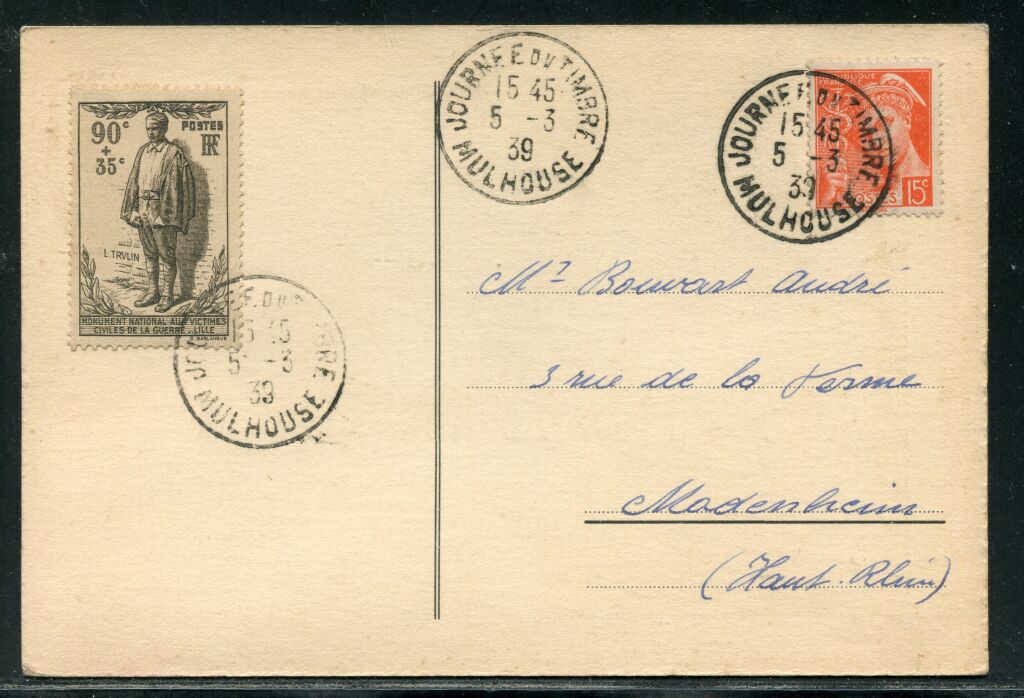 90c + 35c
POSTES
RF
L. TRULIN
MONUMENT NATIONAL AUX VICTIMES
CIVILES DE LA GUERRE - LILLE
JOURNEE DU TIMBRE
15 45
5 -3
39
MULHOUSE
JOURNEE DU TIMBRE
15 45
5 -3
39
MULHOUSE
REPUBLIQUE
FRANCAISE
POSTES
15c
JOURNEE DU TIMBRE
15 45
5 -3
39
MULHOUSE
Mr Bouvart André
3 rue de la Ferme
Modenheim
(Haut-Rhin)